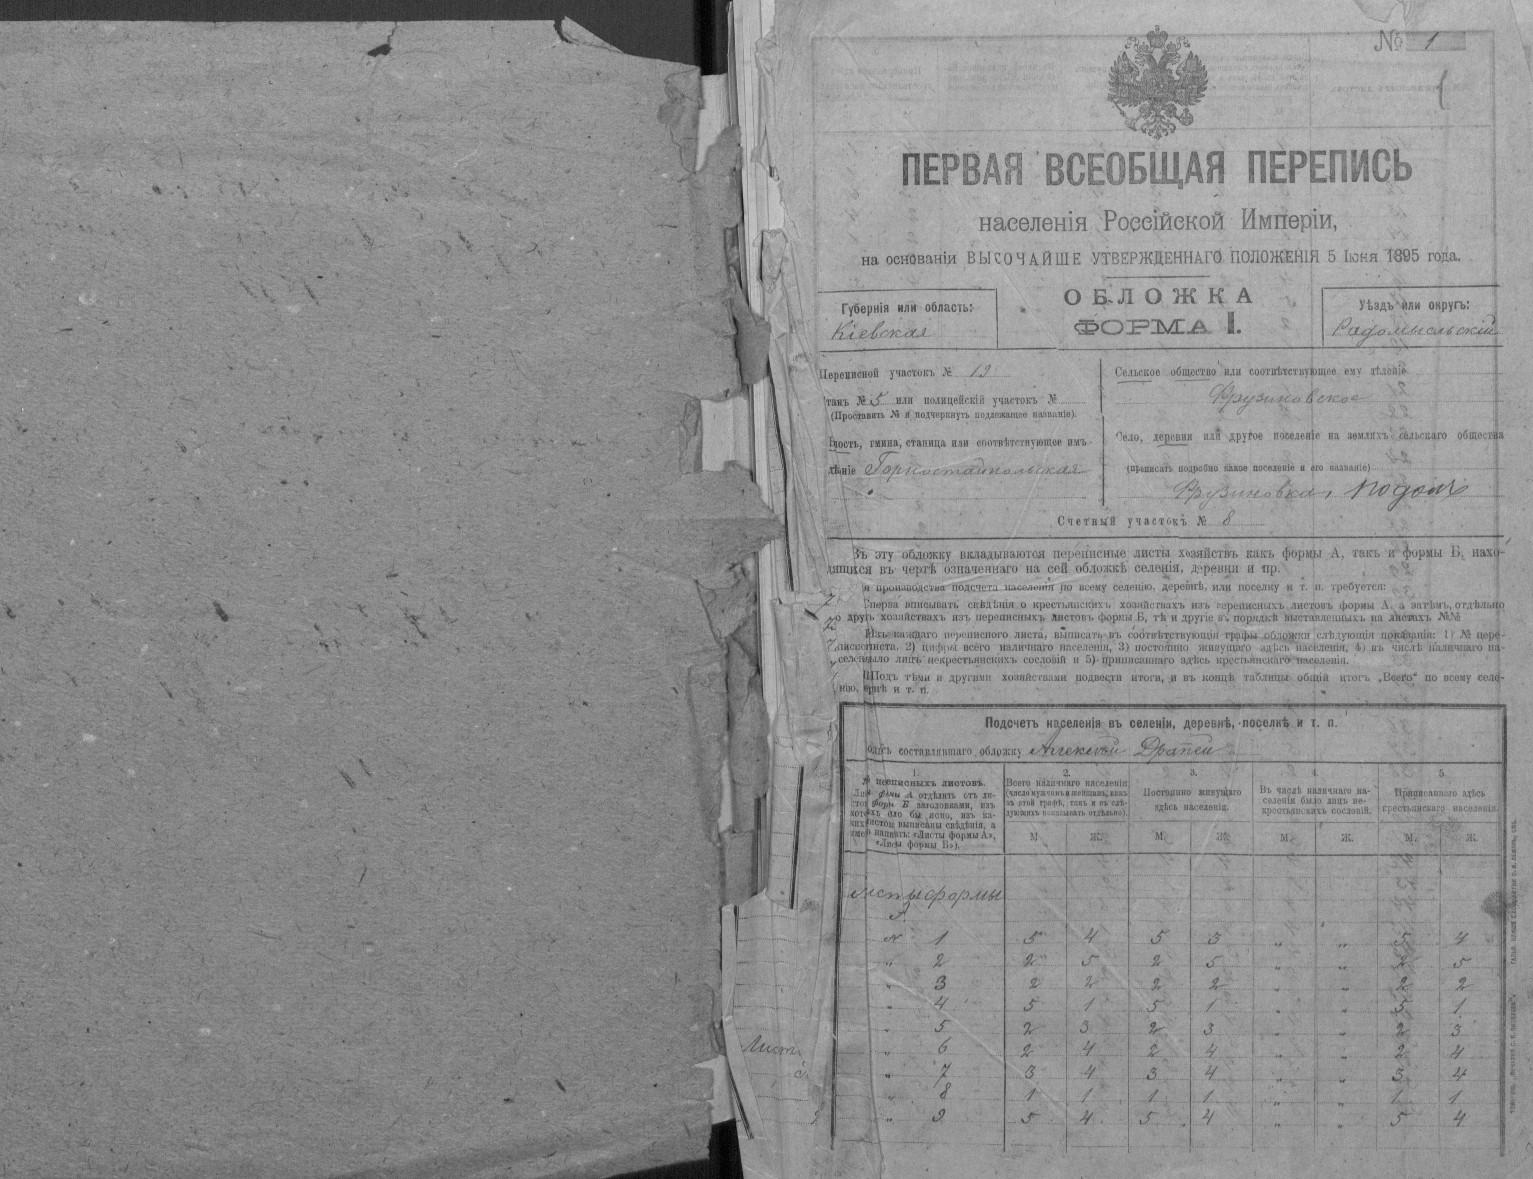 № 1
ПЕРВАЯ ВСЕОБЩАЯ ПЕРЕПИСЬ
населенія Россійской Имперіи,
на основаніи ВЫСОЧАЙШЕ УТВЕРЖДЕННАГО ПОЛОЖЕНІЯ 5 Іюня 1895 года.
ОБЛОЖКА
ФОРМА I.
Губернія или область:
Кіевская
Уѣздъ или округъ:
Радомысльскій
Переписной участокъ №
танъ № 5 или полицейскій участокъ №
(Проставить № и подчеркнуть подлежащее названіе).
лость, гмина, станица или соотвѣтствующее имъ
дѣніе Горностайпольская
Сельское общество или соотвѣтствующее ему дѣленіе
Фрузиновское
Село, деревня или другое поселеніе на земляхъ сельскаго общества
(прописать подробно какое поселеніе и его названіе)
Фрузиновка,
Счетный участокъ № 8
Въ эту обложку вкладываются переписные листы хозяйствъ какъ формы А, такъ и формы Б, нахо-
дящихся въ чертѣ означеннаго на сей обложкѣ селенія, деревни и пр.
я производства подсчета населенія по всему селенію, деревнѣ, или поселку и т. п. требуется:
Сперва вписывать свѣдѣнія о крестьянскихъ хозяйствахъ изъ переписныхъ листовъ формы А, а затѣмъ, отдѣльно
о другъ хозяйствахъ изъ переписныхъ листовъ формы Б, тѣ и другіе въ порядкѣ выставленныхъ на листахъ №№
Изъ каждаго переписного листа, выписать въ соотвѣтствующія графы обложки слѣдующія показанія: 1) № пере-
писного листа, 2) цифры всего наличнаго населенія, 3) постоянно живущаго здѣсь населенія, 4) въ числѣ наличнаго на-
было лицъ некрестьянскихъ сословій и 5) приписаннаго здѣсь крестьянскаго населенія.
Подъ тѣми и другими хозяйствами подвести итоги, и въ концѣ таблицы общій итогъ „Всего“ по всему селе-
нію, и т. п.
Подсчетъ населенія въ селеніи, деревнѣ, поселкѣ и т. п.
составлявшаго обложку Алексѣй
1. 2. 3. 4 5.
переписныхъ листовъ.
формы А отдѣлить отъ ли-
Б заголовками, изъ
бы ясно, изъ ка-
выписаны свѣдѣнія, а
«Листы формы А»,
«Листы формы Б»).
Всего наличнаго населенія
(число мужчинъ и женщинъ, какъ
въ этой графѣ, такъ и въ слѣ-
дующихъ показывать отдѣльно).
Постоянно живущаго
здѣсь населенія.
Въ числѣ наличнаго на-
селенія было лицъ не-
крестьянскихъ сословій.
Приписаннаго здѣсь
крестьянскаго населенія.
М. Ж. М. Ж. М. Ж. М. Ж.
Листы формы
№ 1 5 4 5 3 „ „ 5 4
„ 2 2 5 2 5 „ „ 2 5
„ 3 2 2 2 2 „ „ 2 2
„ 4 5 1 5 1 „ „ 5 1
„ 5 2 3 2 3 „ „ 2 3
„ 6 2 4 2 4 „ „ 2 4
„ 7 3 4 3 4 „ „ 3 4
„ 8 1 1 1 1 „ „ 1 1
„ 9 5 4 5 4 „ „ 5 4